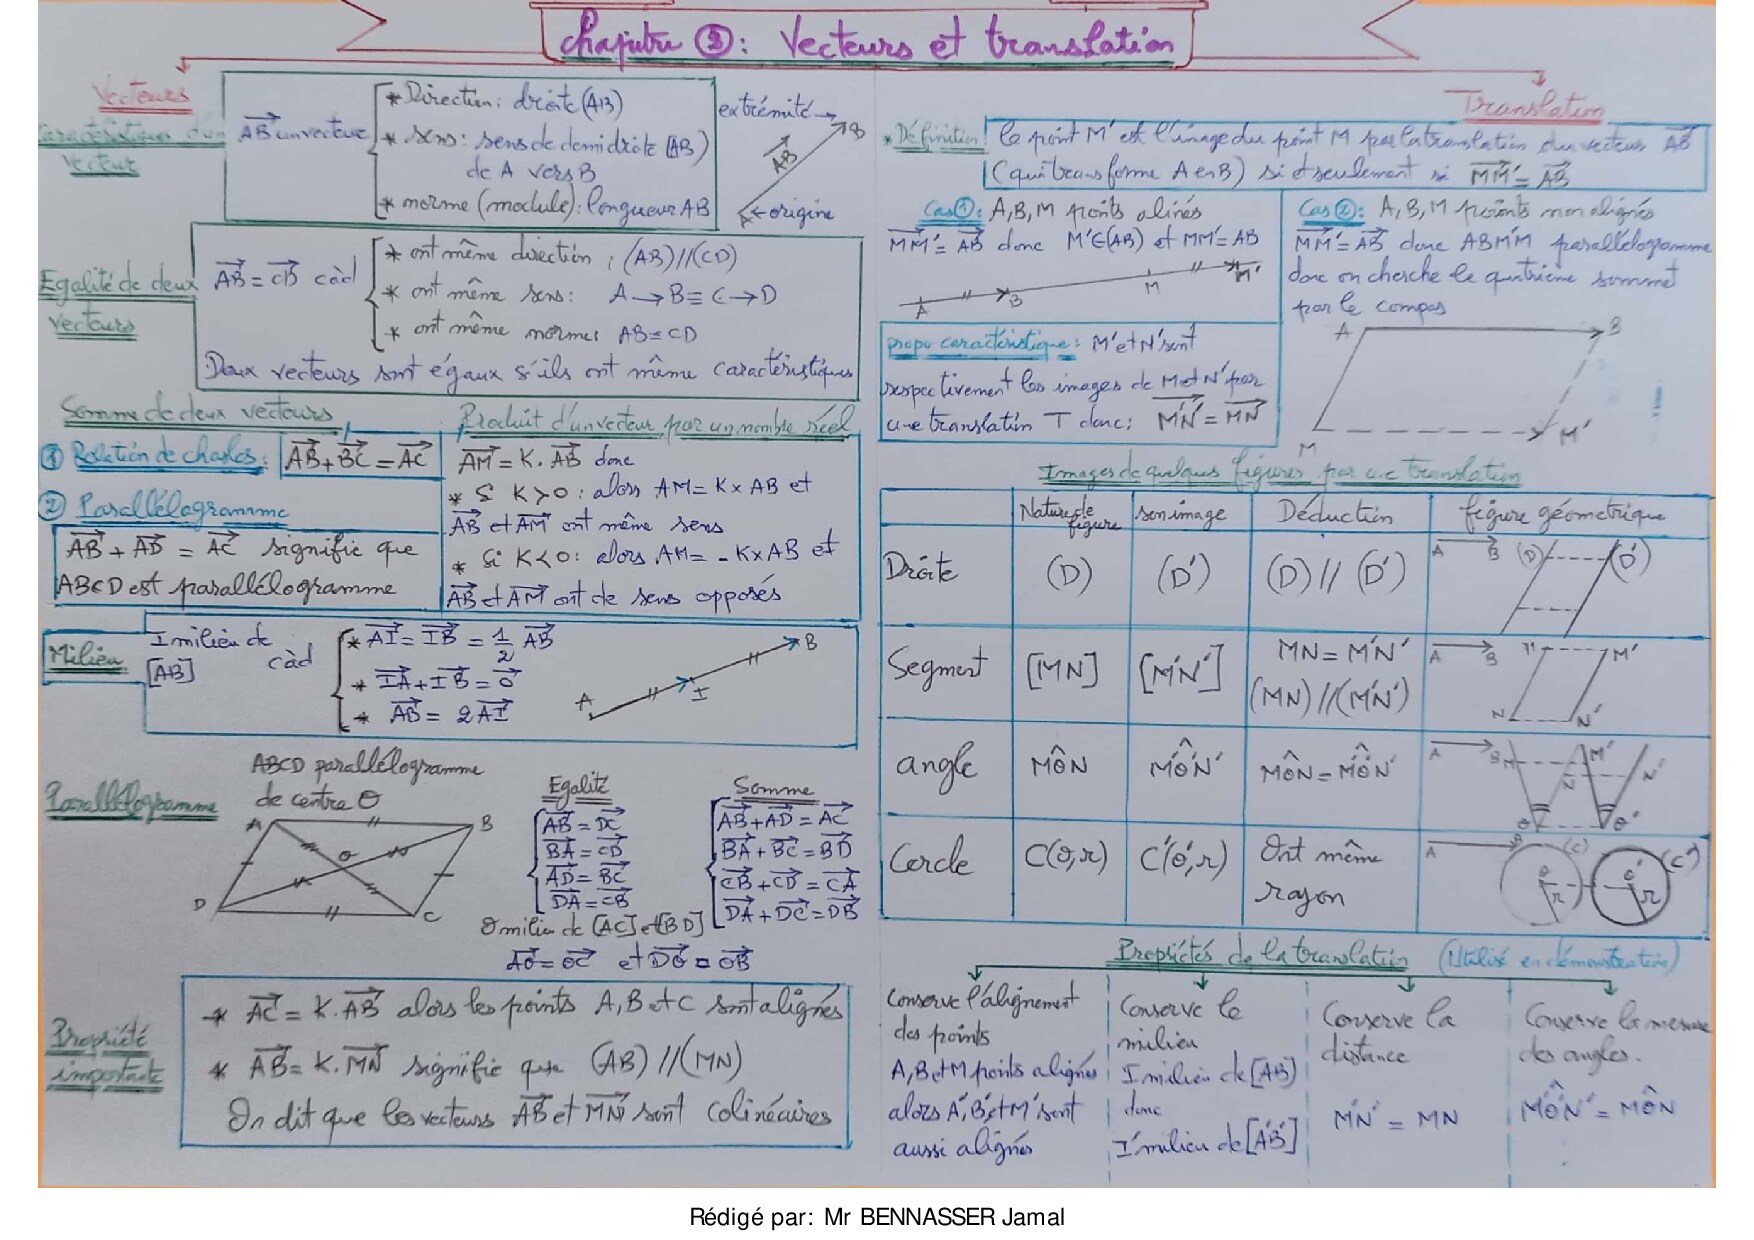 Chapitre ③: Vecteurs et translation
Vecteurs
Caractéristiques d'un vecteur
AB⃗ un vecteur
* Direction: droite (AB)
* sens: sens de demi droite [AB)
de A vers B
* norme (module): longueur AB
extrémité
B
AB⃗
A
origine
Egalité de deux
vecteurs
AB⃗ = CD⃗ càd
* ont même direction : (AB)//(CD)
* ont même sens: A→B ≡ C→D
* ont même normes AB=CD
Deux vecteurs sont égaux s'ils ont même caractéristiques
Somme de deux vecteurs
① Relation de chasles: AB⃗+BC⃗=AC⃗
② Parallélogramme
AB⃗ + AD⃗ = AC⃗ signifie que
ABCD est parallélogramme
Produit d'un vecteur par un nombre réel
AM⃗ = K. AB⃗ donc
* Si K>0: alors AM= K x AB et
AB⃗ et AM⃗ ont même sens
* Si K<0: alors AM= - K x AB et
AB⃗ et AM⃗ ont de sens opposés
Milieu
I milieu de
[AB]
càd
* AI⃗ = IB⃗ = 1/2 AB⃗
* IA⃗+IB⃗=0⃗
* AB⃗ = 2AI⃗
A I B
Parallélogramme
ABCD parallélogramme
de centre O
A B
O
D C
Egalité
AB⃗=DC⃗
BA⃗=CD⃗
AD⃗=BC⃗
DA⃗=CB⃗
Somme
AB⃗+AD⃗=AC⃗
BA⃗+BC⃗=BD⃗
CB⃗+CD⃗=CA⃗
DA⃗+DC⃗=DB⃗
O milieu de [AC] et [BD]
AO⃗=OC⃗ et DO⃗=OB⃗
Propriété
importante
* AC⃗ = K.AB⃗ alors les points A,B et C sont alignés
* AB⃗= K.MN⃗ signifie que (AB)//(MN)
On dit que les vecteurs AB⃗ et MN⃗ sont colinéaires
Translation
* Définition: le point M' est l'image du point M par la translation du vecteur AB⃗
(qui transforme A en B) si et seulement si MM'⃗=AB⃗
Cas①: A,B,M points alinés
MM'⃗=AB⃗ donc M'∈(AB) et MM'=AB
A B M M'
Cas②: A,B,M points non alignés
MM'⃗=AB⃗ donc ABM'M parallélogramme
donc on cherche le quatrième sommet
par le compas
A B
M M'
propr caractéristique: M' et N' sont
respectivement les images de M et N par
une translation T donc: M'N'⃗ = MN⃗
Images de quelques figures par une translation
Nature de figure son image Déduction figure géometrique
Droite (D) (D') (D) // (D') A B (D) (D')
Segment [MN] [M'N'] MN=M'N' (MN)//(M'N') A B M M' N N'
angle MÔN M'Ô'N' MÔN=M'Ô'N' A B M M' N N' O O'
Cercle C(O,r) C'(O',r) Ont même rayon A B (C) (C') O O' r r
Propriétés de la translation (Utilisé en démonstration)
Conserve l'alignement
des points
A,B et M points alignés
alors A',B' et M' sont
aussi alignés
Conserve le
milieu
I milieu de [AB]
donc
I' milieu de [A'B']
Conserve la
distance
M'N' = MN
Conserve la mesure
des angles.
M'Ô'N' = MÔN
Rédigé par: Mr BENNASSER Jamal